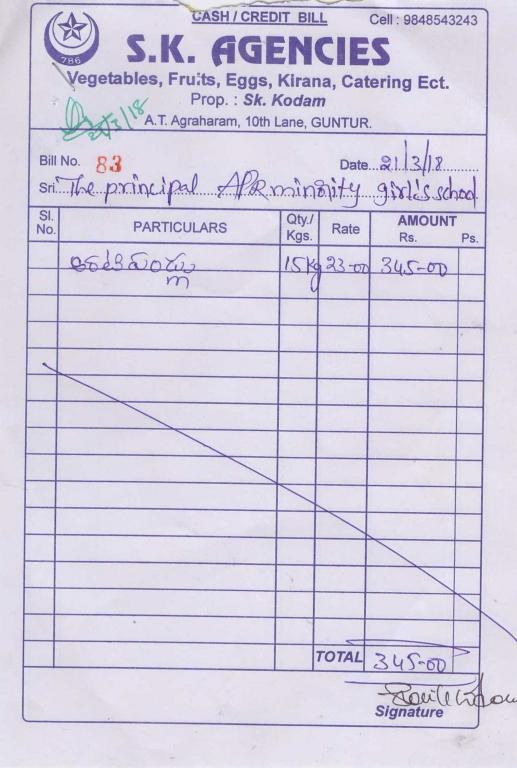 CASH / CREDIT BILL Cell : 9848543243
786
S.K. AGENCIES
Vegetables, Fruits, Eggs, Kirana, Catering Ect.
Prop. : Sk. Kodam
21/3/18
A.T. Agraharam, 10th Lane, GUNTUR.
Bill No. 83 Date... 21/3/18
Sri. The principal APR minority girl's school
Sl. No. PARTICULARS Qty./ Kgs. Rate AMOUNT Rs. Ps.
అరటిపండ్లు 15 Kg 23-00 345-00
TOTAL 345-00
Signature